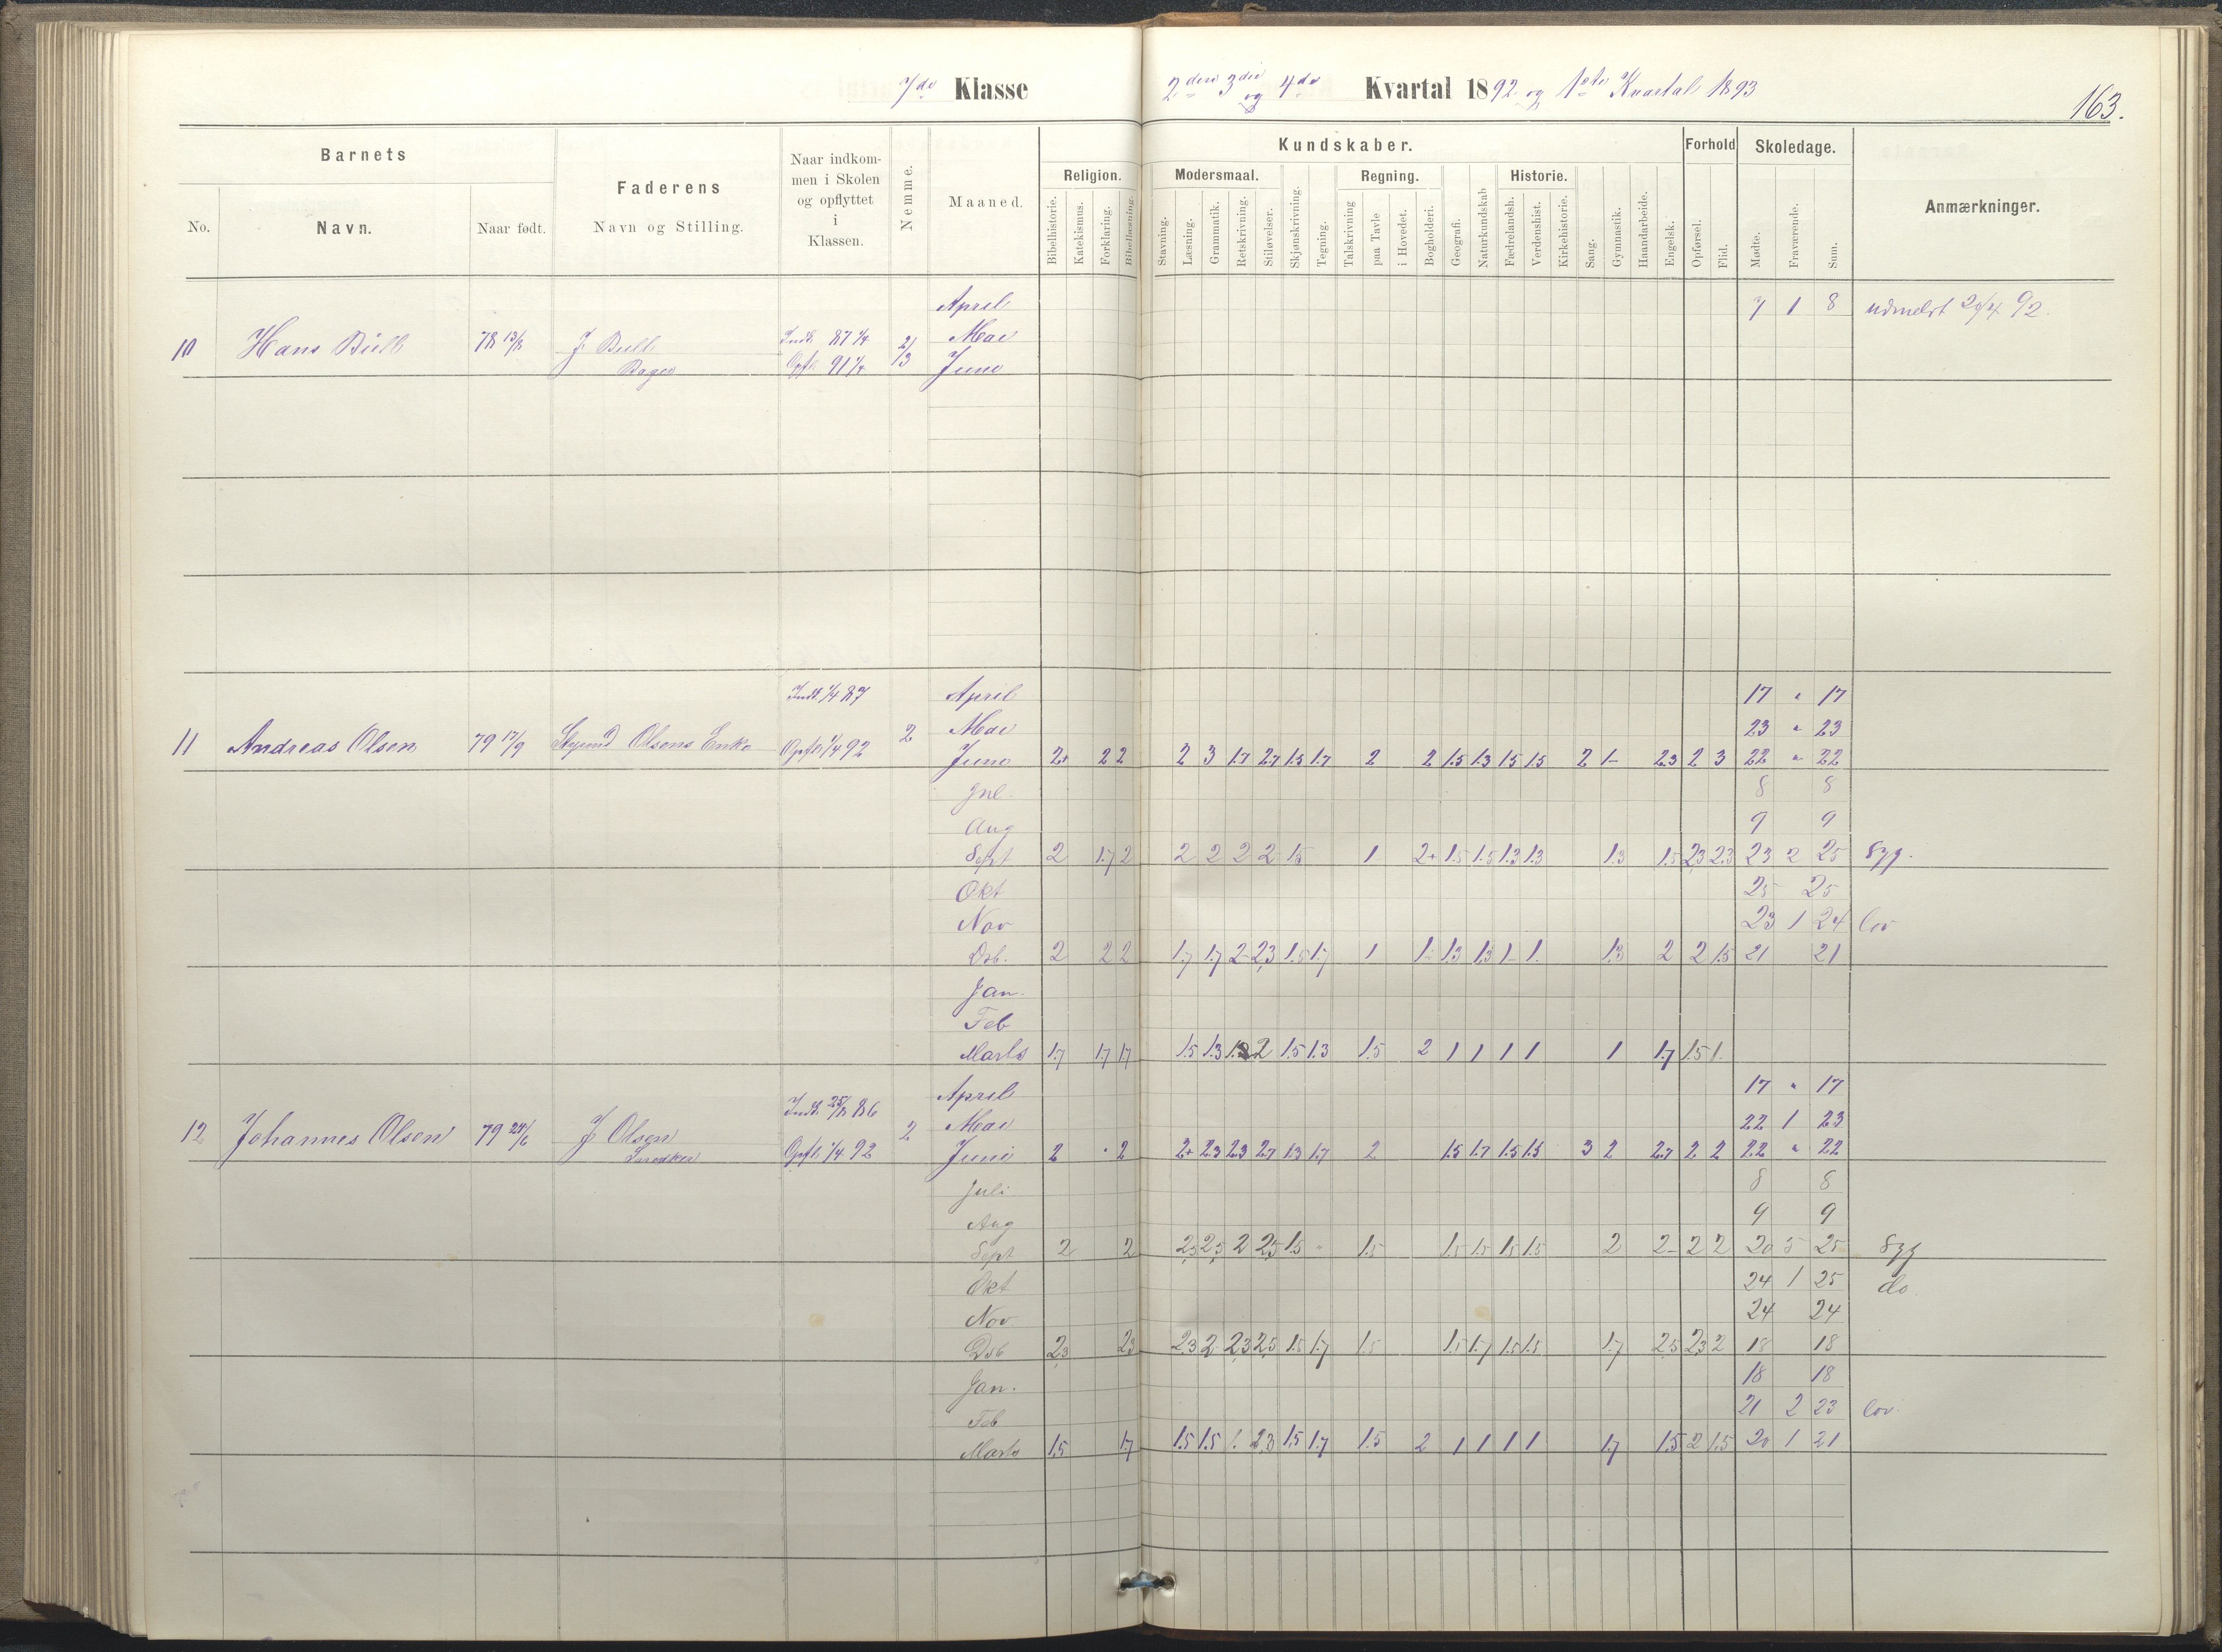 7de Klasse
2den 3die og 4de Kvartal 1892 og 1ste Kvartal 1893
163.
Barnets
No.
Navn.
Naar født.
Faderens
Navn og Stilling.
Naar indkom-
men i Skolen
og opflyttet
i
Klassen.
Nemme.
Maaned.
Kundskaber.
Religion.
Bibelhistorie.
Katekismus.
Forklaring.
Bibellæsning.
Modersmaal.
Stavning.
Læsning.
Grammatik.
Retskrivning.
Stiløvelser.
Skjønskrivning.
Tegning.
Regning.
Talskrivning
paa Tavle
i Hovedet.
Bogholderi.
Geografi.
Naturkundskab
Historie.
Fædrelandsh.
Verdenshist.
Kirkehistorie.
Sang.
Gymnastik.
Haandarbeide.
Engelsk.
Forhold
Opførsel.
Flid.
Skoledage.
Mødte.
Fraværende.
Sum.
Anmærkninger.
April 7 1 8 udmeldt 20/4 92.
10 Hans Bull 78 13/8 J. Bull Indt. 87 1/4 2/3 Mai
Bager Opfl. 91 1/4 Juni
Indt. 1/4 87 April 17 " 17
Mai 23 " 23
11 Andreas Olsen 79 17/9 Olsens Enke Opfl. 1/4 92 2
Juni 2+ 2 2 2 3 1.7 2.7 1.5 1.7 2 2 1.5 1.3 1.5 1.5 2 1- 2.3 2 3 22 " 22
Jul. 8 8
Aug 9 9
Sept 2 1.7 2 2 2 2 2 1.5 1 2+ 1.5 1.5 1.3 1.3 1.3 1.5 2,3 2.3 23 2 25 Syg.
Okt 25 25
Nov 23 1 24 lov
Dsb. 2 2 2 1.7 1.7 2- 2,3 1.5 1.7 1 1- 1.3 1.3 1- 1. 1.3 2 2 1.5 21 21
Jan.
Feb
Marts 1.7 1.7 1.7 1.5 1.3 2 1.5 1.3 1.5 2 1 1 1 1 1 1.7 1.5 1.
April 17 " 17
Indt. 25/8 86 2 Mai 22 1 23
12 Johannes Olsen 79 24/6 J. Olsen
Snedker Opfl. 1/4 92 Juni 2 " 2 2+ 2.3 2.3 2.7 1.3 1.7 2 1.5 1.7 1.5 1.5 3 2 2.7 2 2 22 " 22
Juli 8 8
Aug 9 9
Sept 2 2 2,5 2,5 2 2,5 1.5 " 1.5 1.5 1.5 1.5 1.5 2 2- 2 2 20 5 25 Syg
Okt 24 1 25 do.
Nov. 24 24
Dsb 2,3 2,3 2,3 2 2,3 2,5 1.5 1.7 1.5 1.5 1.7 1.5 1.5 1.7 2,5 2,3 2 18 18
Jan. 18 18
Feb 21 2 23 lov.
Marts 1.5 1.7 1.5 1.5 1. 2,3 1.5 1.7 1.5 2 1 1 1 1 1.7 1.5 2 1.5 20 1 21